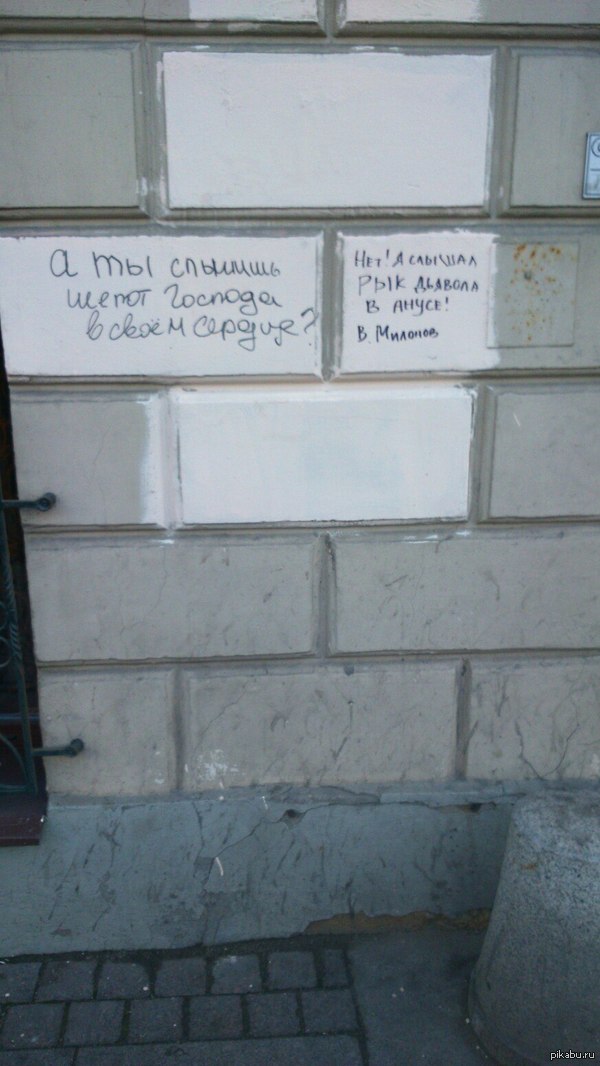 а ты слышишь
шепот Господа
в своём сердце?
НЕТ! Я СЛЫШАЛ
РЫК ДЬЯВОЛА
В АНУСЕ!
В. Милонов
pikabu.ru